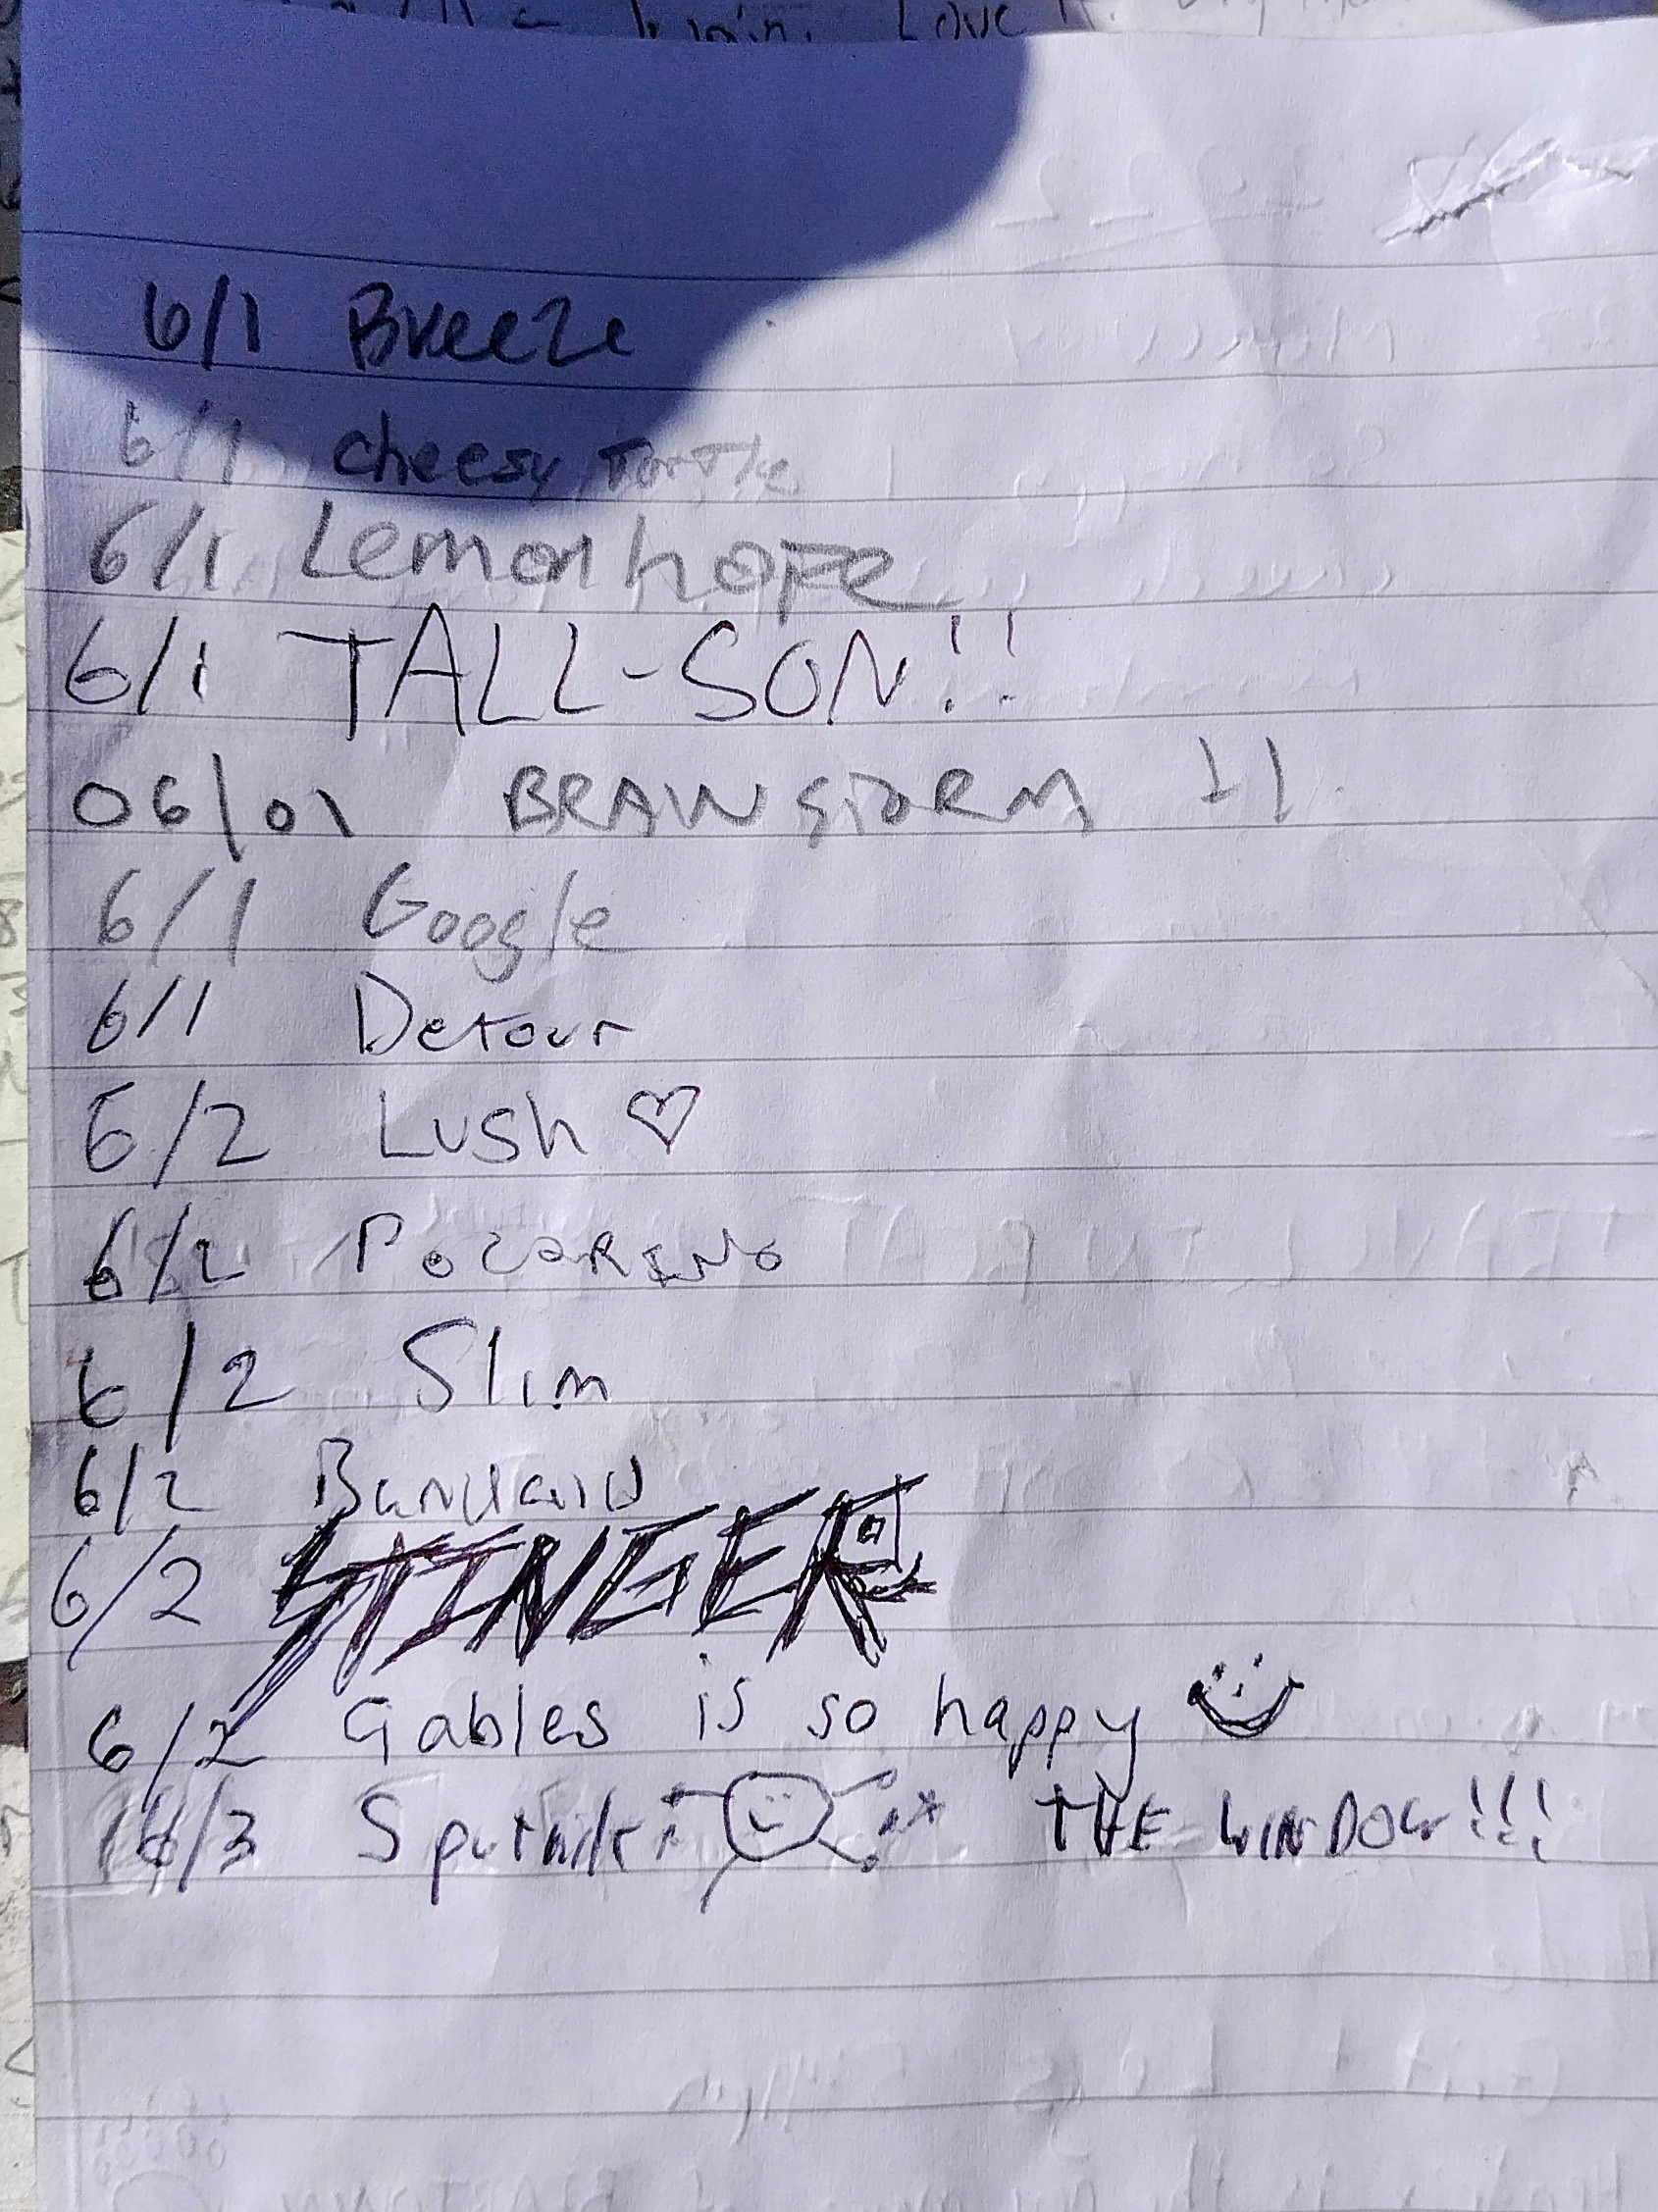 Love
6/1 Breeze
6/1 cheesy Tortle
6/1 Lemonhope
6/1 TALL-SON!!
06/01 BRAINSTORM !!
6/1 Google
6/1 Detour
6/2 Lush ♡
6/2 POZERINO
6/2 Slim
6/2 Bandaid
6/2 STINGER
6/2 Gables is so happy
/3 Sputnik THE WINDOW!!!